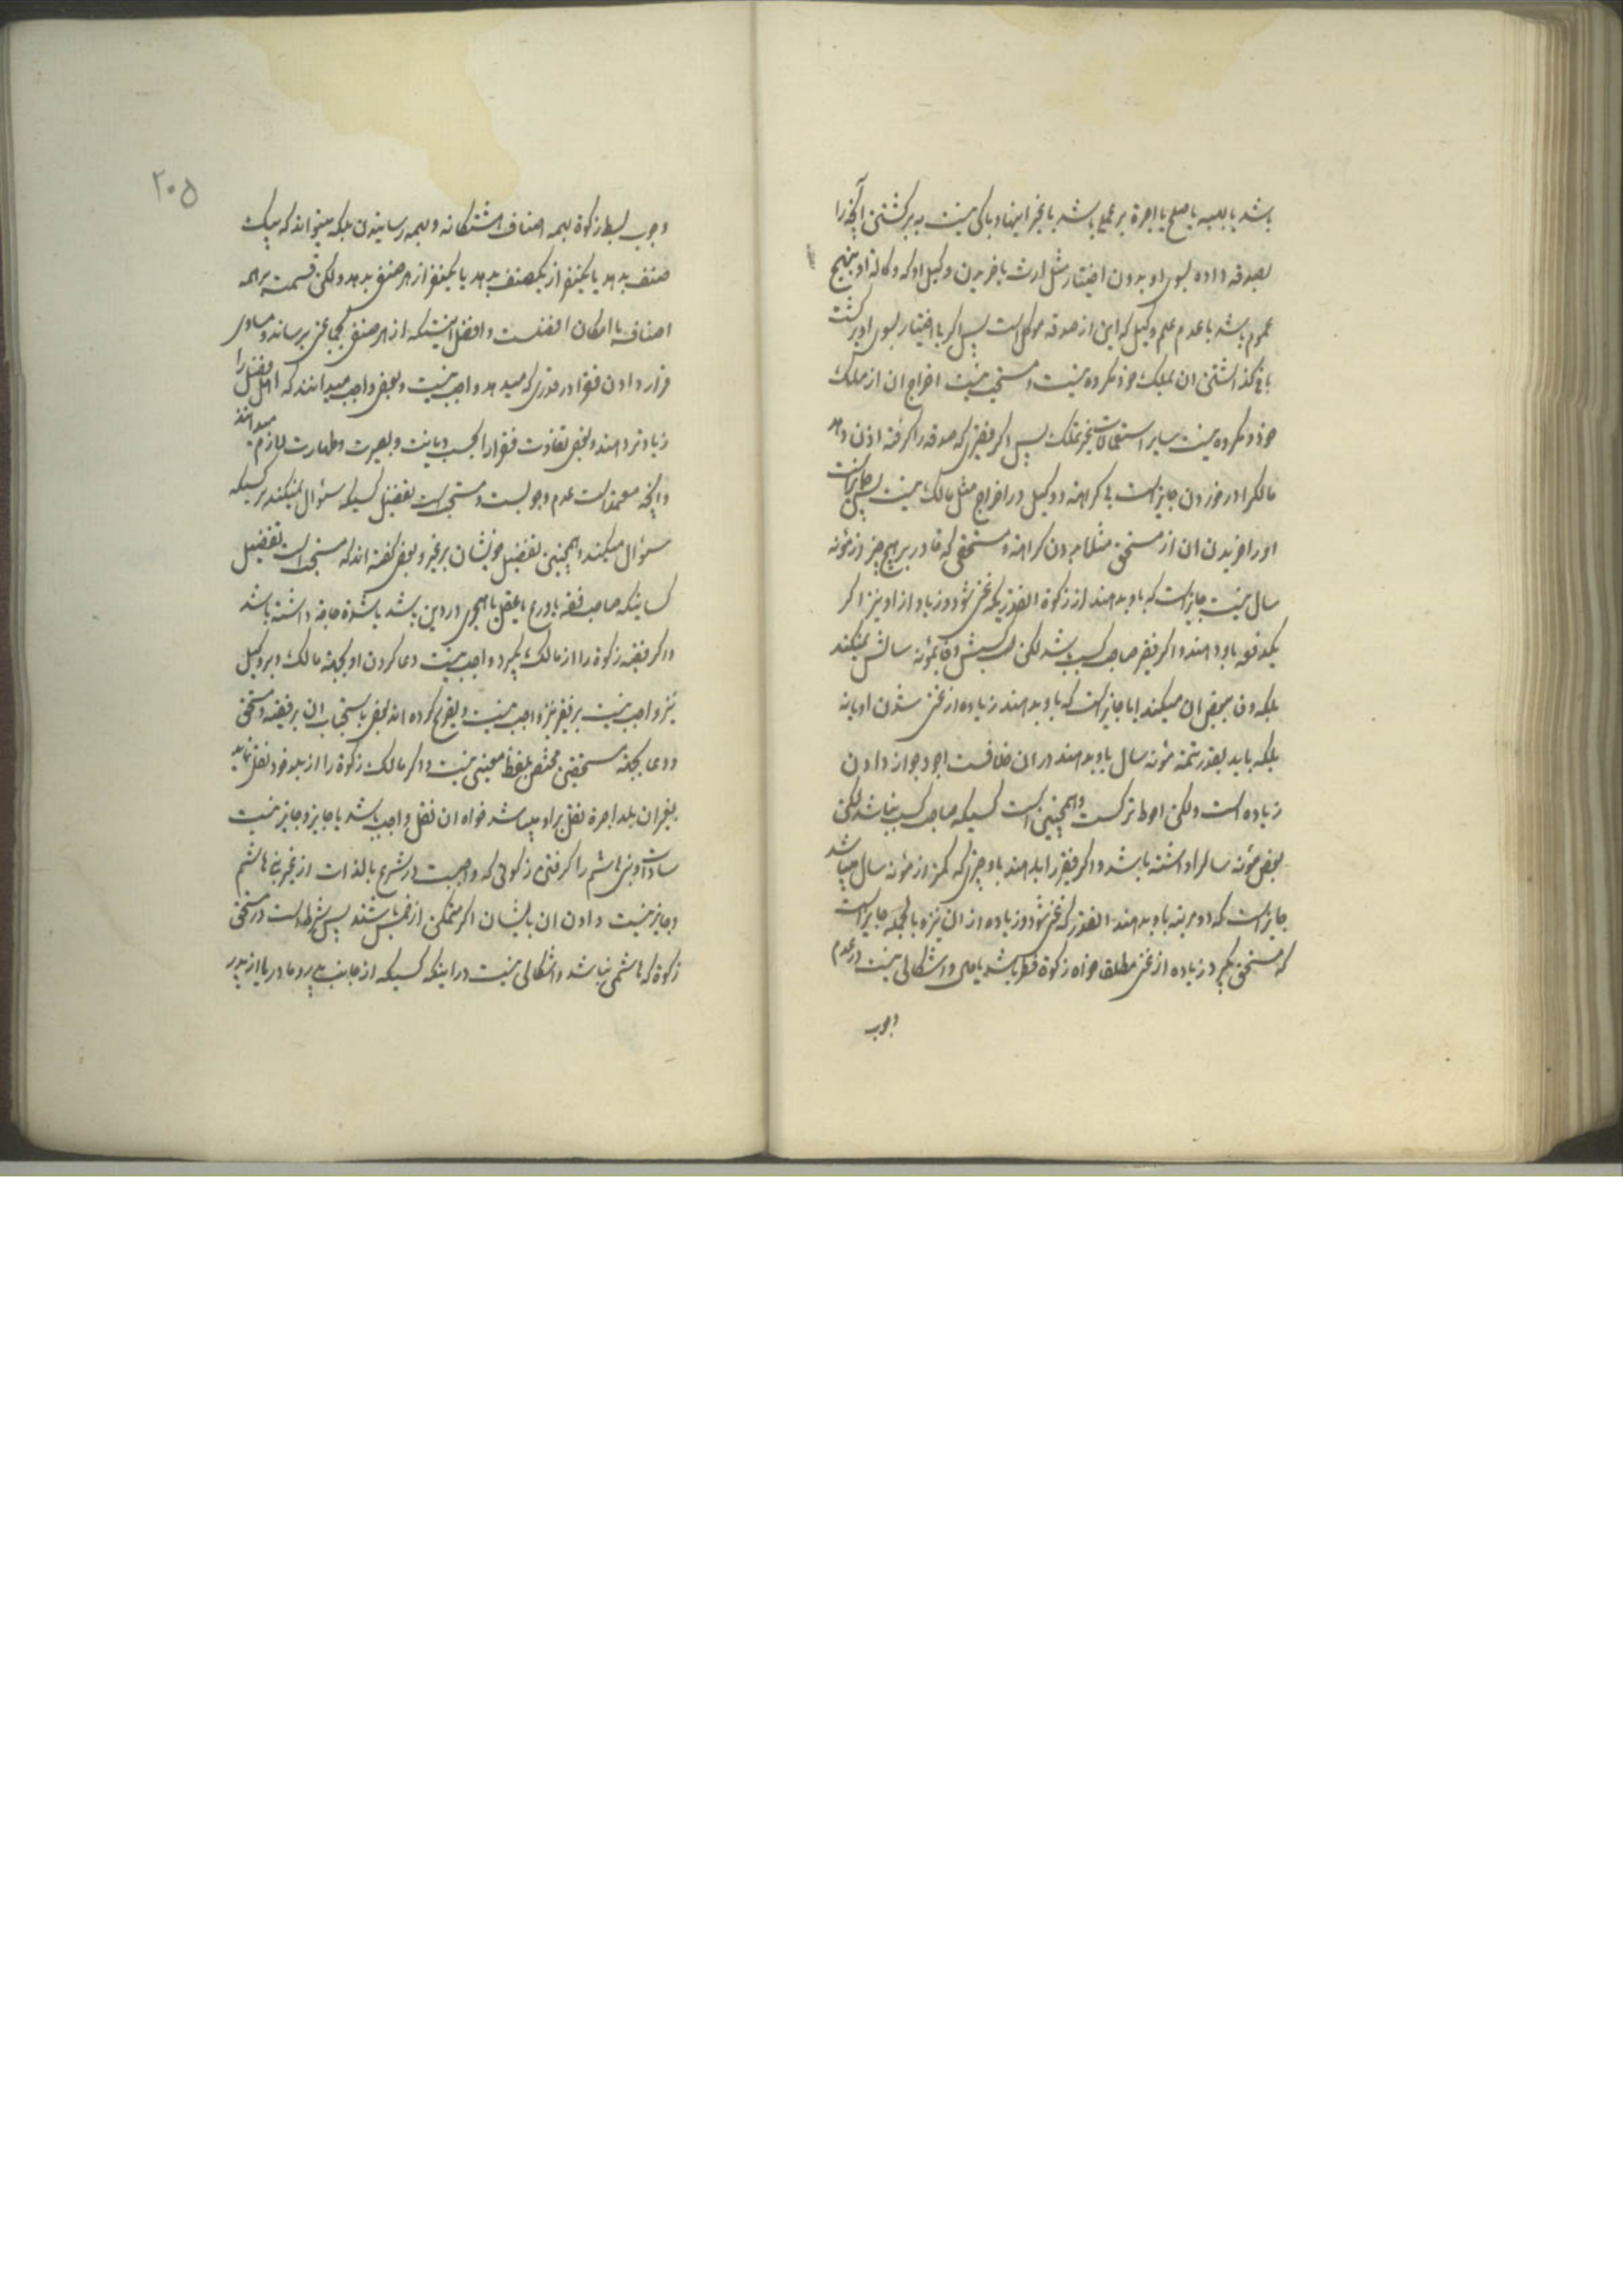 باشد یا بهبه یا صلح یا اجرة بر عملی باشد یا بغیر اینها و باکی نیست به برگشتن آنچه را
بصدقه داده بسوی او بدون اختیار مثل ارث یا خریدن وکیل او که وکالة او بنهج
عموم باشد با عدم علم وکیل که این از صدقه موکل است پس اگر با اختیار بسوی او برگشت
باقی گذاشتن ان بملک خود مکروه نیست و مستحب نیست اخراج ان از ملک
خود و مکروه نیست سایر استعمالات بغیر تملک پس اگر فقیری که صدقه را گرفته اذن دهد
مالک را در خوردن جایز است بی کراهة و وکیل در اخراج مثل مالک نیست پس جایز است
او را خریدن ان از مستحق مثلا بدون کراهة و مستحقی که قادر بر هیچ چیز از مؤنه
سال نیست جایز است که باو بدهند از زکوة انقدریکه غنی شود و زیاد از او نیز اگر
یکدفعه باو دهند و اگر فقیر صاحب کسب باشد لکن کسبش وفا بمؤنه سالش نمیکند
بلکه وفا ببعض ان میکند ایا جایز است که باو بدهند زیاده از غنی شدن او یا نه
بلکه باید بقدر تتمه مؤنه سال باو بدهند در ان خلافست اجود جواز دادن
زیاده است ولکن احوط ترکست و همچنین است کسیکه صاحب کسب نباشد لکن
بعض مؤنه سال را داشته باشد و اگر فقیر را بدهند باو چیزی که کمتر از مؤنه سال میباشد
جایز است که دو مرتبه باو بدهند انقدر که غنی شود و زیاده از ان نیز و بالجمله جایز است
که مستحق بگیرد زیاده از غنی مطلقا خواه زکوة فطر باشد یا مال و اشکالی نیست در عدم
وجوب
۲۰۵
وجوب بسط زکوة بهمه اصناف هشتگانه و بهمه رسانیدن بلکه میتواند که بیک
صنف بدهد یا بیکنفر از یکصنف بدهد یا بیکنفر از هر صنفی بدهد ولکن قسمت بر همه
اصناف با امکان افضلست و افضل اینستکه از هر صنفی بجماعتی برساند و مساوی
قرار دادن فقرا در قدری که میدهد واجب نیست و بعض واجب میدانند که اهل فضل را
زیادتر دهند و بعض تفاوت فقرا را بحسب دیانت و بصیرت و طهارت لازم میدانند
و آنچه معتمد است عدم وجوبست و مستحب است تفضیل کسیکه سؤال نمیکند بر کسیکه
سؤال میکند و همچنین تفضیل خویشان بر غیر و بعض گفته اند که مستحب است تفضیل
کسانیکه صاحب فقه یا ورع یا عقل یا هجرت در دین باشد یا شدة حاجة داشته باشد
و اگر فقیه زکوة را از مالک بگیرد واجب نیست دعا کردن او بجهة مالک و بر وکیل
نیز واجب نیست بر فقیر نیز واجب نیست و تصریح کرده اند بعض باستحباب ان بر فقیه و مستحق
و دعا بجهة مستحقین مختص بلفظ معینی نیست و اگر مالک زکوة را از بلد خود نقل نماید
بغیر ان بلد اجرة نقل بر او میباشد خواه ان نقل واجب باشد یا جایز و جایز نیست
سادات و بنی هاشم را گرفتن زکوتی که واجبست در شرع بالذات از غیر بنی هاشم
و جایز نیست دادن ان بایشان اگر متمکن از خمس باشند پس شرط است در مستحق
زکوة که هاشمی نباشد و اشکالی نیست در اینکه کسیکه از جانب پدر و مادر یا از پدر